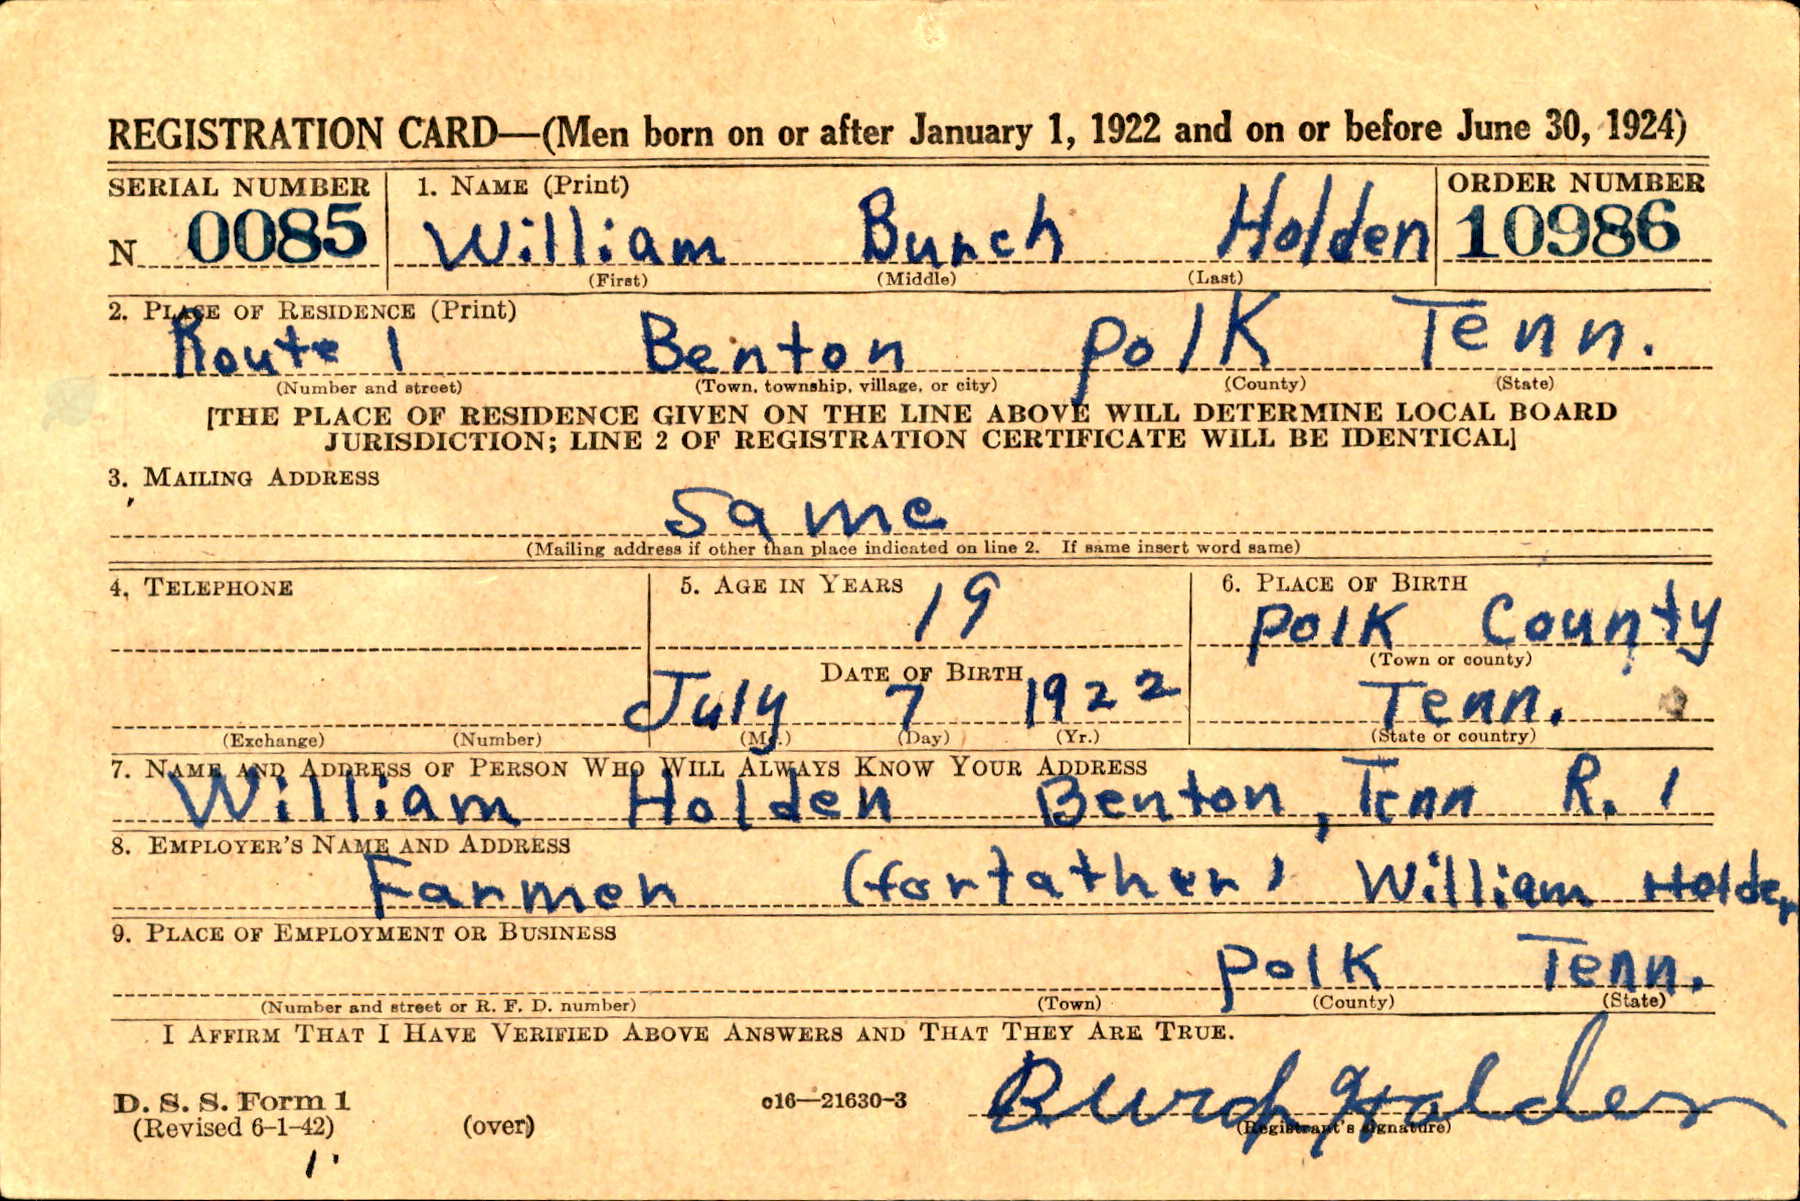 REGISTRATION CARD—(Men born on or after January 1, 1922 and on or before June 30, 1924)
SERIAL NUMBER 1. NAME (Print) ORDER NUMBER
N 0085 William Bunch Holden 10986
(First) (Middle) (Last)
2. PLACE OF RESIDENCE (Print)
Route 1 Benton Polk Tenn.
(Number and street) (Town, township, village, or city) (County) (State)
[THE PLACE OF RESIDENCE GIVEN ON THE LINE ABOVE WILL DETERMINE LOCAL BOARD
JURISDICTION; LINE 2 OF REGISTRATION CERTIFICATE WILL BE IDENTICAL]
3. MAILING ADDRESS
Same
(Mailing address if other than place indicated on line 2. If same insert word same)
4. TELEPHONE 5. AGE IN YEARS 6. PLACE OF BIRTH
19 Polk County
(Town or county)
DATE OF BIRTH
July 7 1922 Tenn.
(Exchange) (Number) (Mo.) (Day) (Yr.) (State or country)
7. NAME AND ADDRESS OF PERSON WHO WILL ALWAYS KNOW YOUR ADDRESS
William Holden Benton, Tenn R. 1
8. EMPLOYER'S NAME AND ADDRESS
Farmer (for father) William Holden
9. PLACE OF EMPLOYMENT OR BUSINESS
Polk Tenn.
(Number and street or R. F. D. number) (Town) (County) (State)
I AFFIRM THAT I HAVE VERIFIED ABOVE ANSWERS AND THAT THEY ARE TRUE.
D. S. S. Form 1
(Revised 6-1-42) (over) 16—21630-3 Burch Holden
(Registrant's signature)